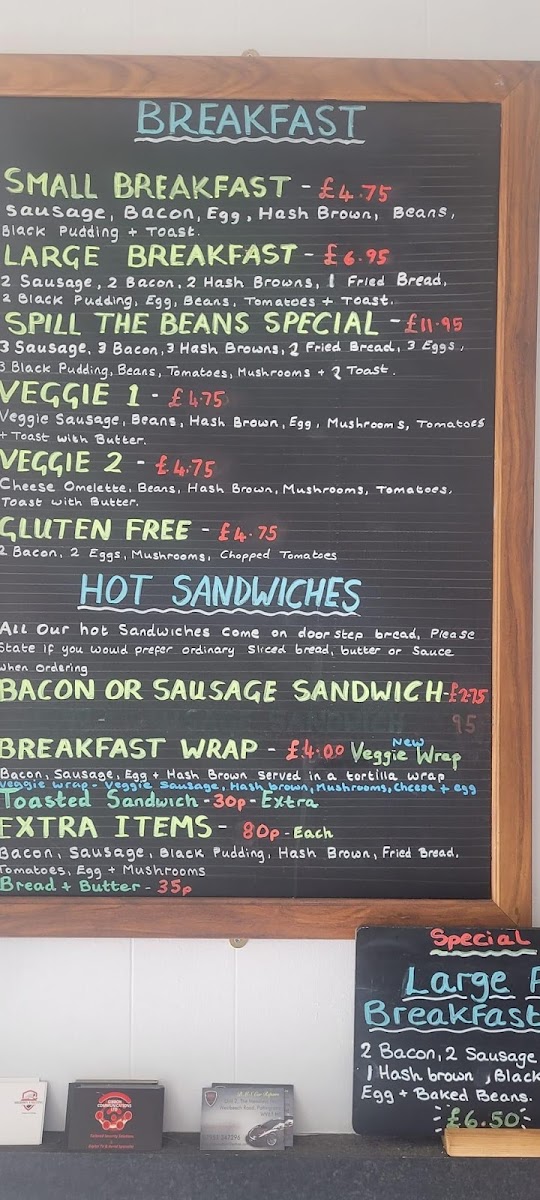 BREAKFAST
SMALL BREAKFAST - £4.75
Sausage, Bacon, Egg, Hash Brown, Beans,
Black Pudding + Toast.
LARGE BREAKFAST - £6.95
2 Sausage, 2 Bacon, 2 Hash Browns, 1 Fried Bread,
2 Black Pudding, Egg, Beans, Tomatoes + Toast.
SPILL THE BEANS SPECIAL - £11.95
3 Sausage, 3 Bacon, 3 Hash Browns, 2 Fried Bread, 3 Eggs,
3 Black Pudding, Beans, Tomatoes, Mushrooms + 2 Toast.
VEGGIE 1 - £4.75
Veggie Sausage, Beans, Hash Brown, Egg, Mushrooms, Tomatoes
+ Toast with Butter.
VEGGIE 2 - £4.75
Cheese Omelette, Beans, Hash Brown, Mushrooms, Tomatoes,
Toast with Butter.
GLUTEN FREE - £4.75
2 Bacon, 2 Eggs, Mushrooms, Chopped Tomatoes
HOT SANDWICHES
All Our hot Sandwiches Come on door step bread, Please
State if you would prefer ordinary Sliced bread, butter or Sauce
when ordering
BACON OR SAUSAGE SANDWICH - £2.75
SANDWICH 95
BREAKFAST WRAP - £4.00 New Veggie Wrap
Bacon, Sausage, Egg + Hash Brown Served in a tortilla wrap
Veggie wrap - Veggie Sausage, Hash brown, Mushrooms, Cheese + egg
Toasted Sandwich - 30p - Extra
EXTRA ITEMS - 80p - Each
Bacon, Sausage, Black Pudding, Hash Brown, Fried Bread,
Tomatoes, Egg + Mushrooms
Bread + Butter - 35p
Special
Large
Breakfast
2 Bacon, 2 Sausage
1 Hash brown, Black
Egg + Baked Beans.
£6.50